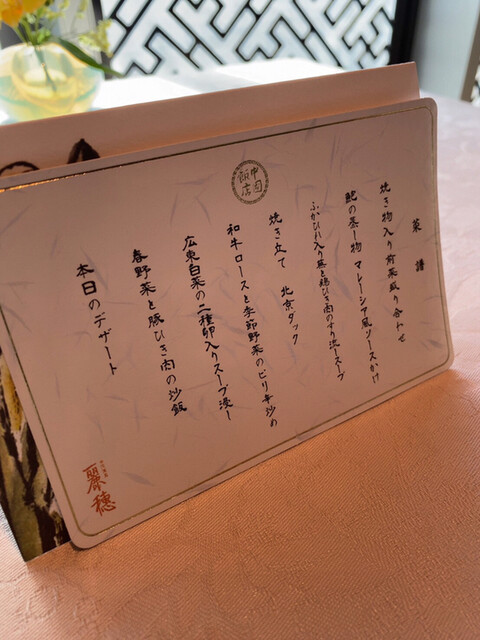 菜譜
焼き物入り前菜盛り合わせ
鮑の蒸し物 マレーシア風ソースかけ
ふかひれ入り蟹と鶏ひき肉のすり流しスープ
焼き立て 北京ダック
和牛ロースと季節野菜のピリ辛炒め
広東白菜の二種卵入りスープ浸し
春野菜と豚ひき肉の炒飯
本日のデザート
中国飯店
麗穂